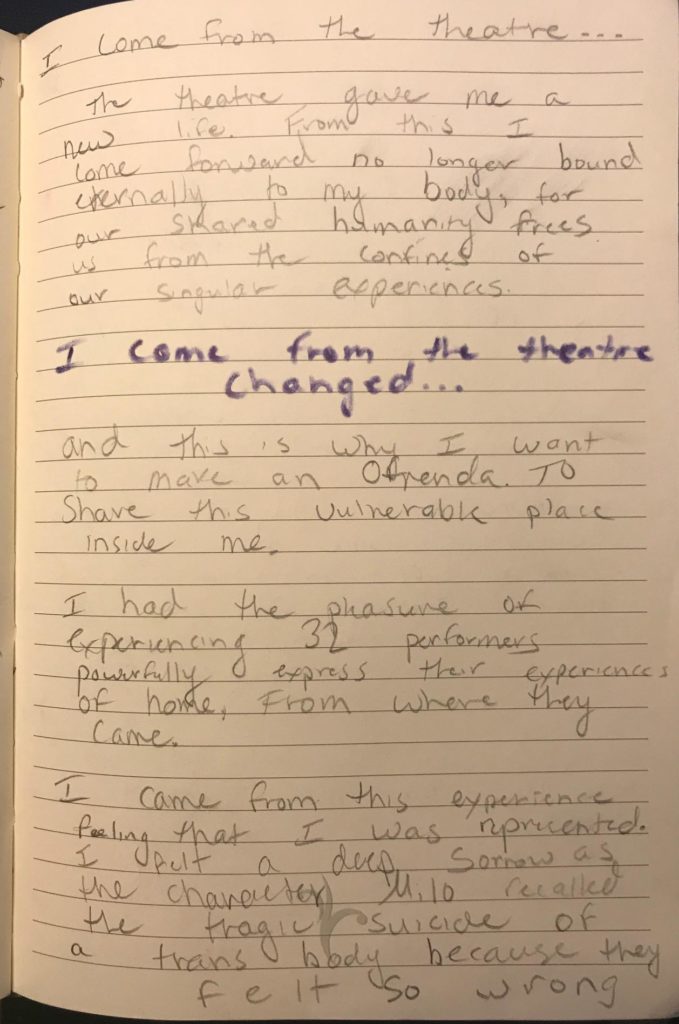 I come from the theatre...
The theatre gave me a
new life. From this I
come forward no longer bound
eternally to my body, for
our shared humanity frees
us from the confines of
our singular experiences.
I come from the theatre
changed...
and this is why I want
to make an Ofrenda. To
Share this vulnerable place
inside me.
I had the pleasure of
experiencing 32 performers
powerfully express their experiences
of home, From where they
came.
I came from this experience
feeling that I was represented.
I felt a deep sorrow as
the character Milo recalled
the tragic suicide of
a trans body because they
felt so wrong